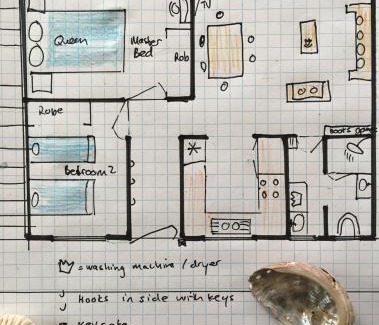 TV
Queen
Master
Bed
Rob
Robe
Bedroom 2
= washing machine / dryer
Hooks in side with keys